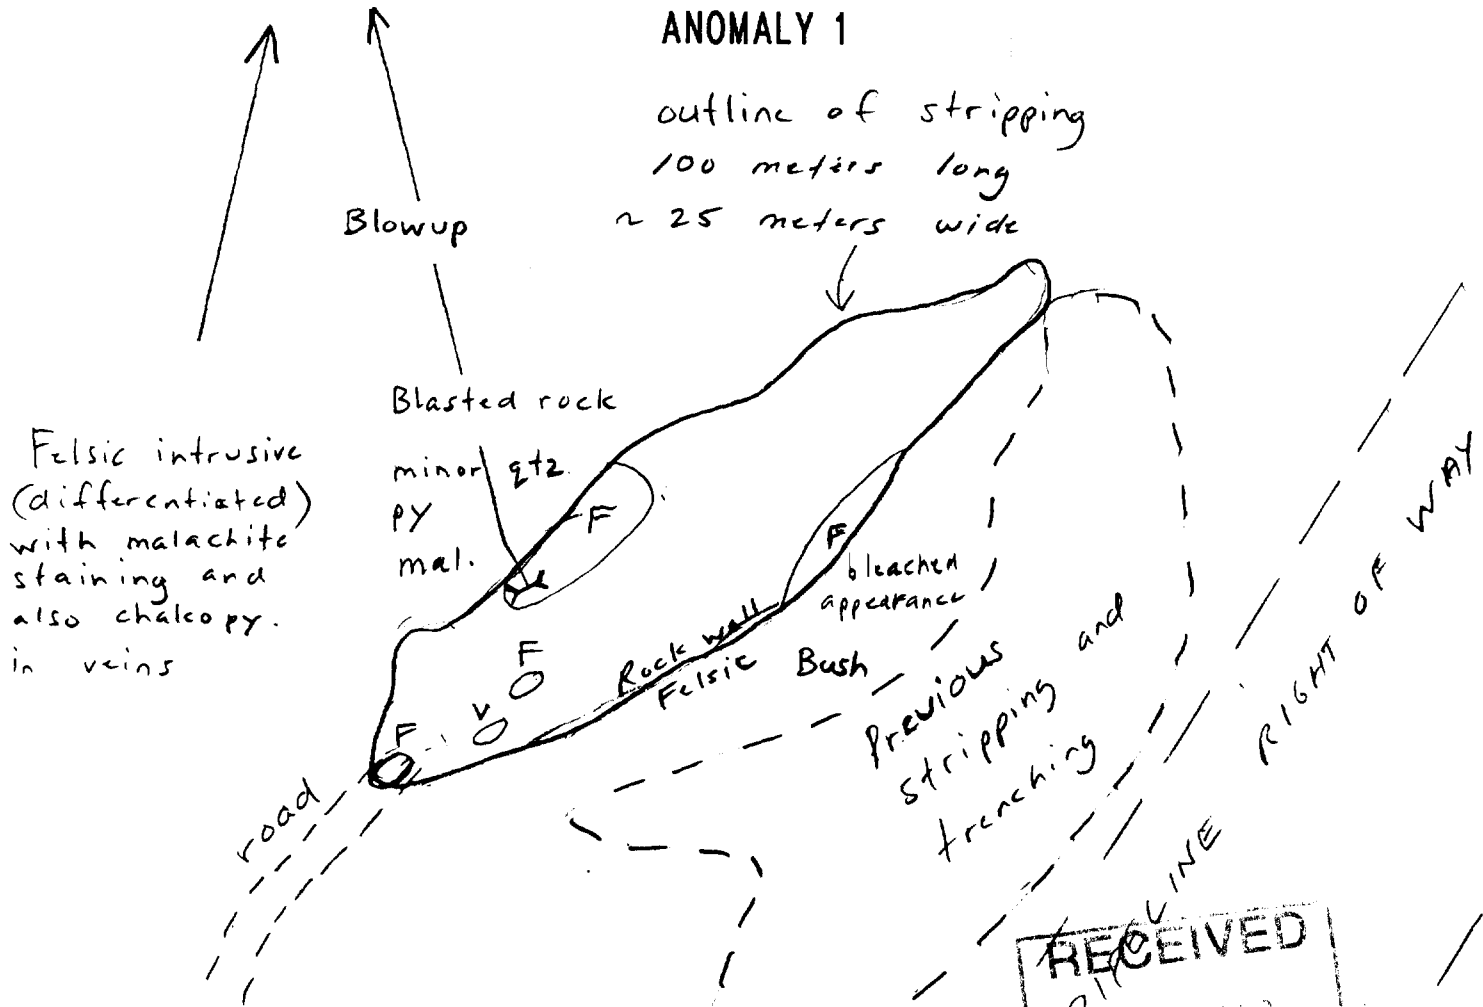 ANOMALY 1
outline of stripping
100 meters long
~ 25 meters wide
Blowup
Blasted rock
minor qtz.
py
mal.
Felsic intrusive
(differentiated)
with malachite
staining and
also chalcopy.
in veins
F
F
bleached
appearance
F
V
F
Rock wall
Felsic
Bush
road
Previous and
stripping
trenching
PIPELINE RIGHT OF WAY
RECEIVED